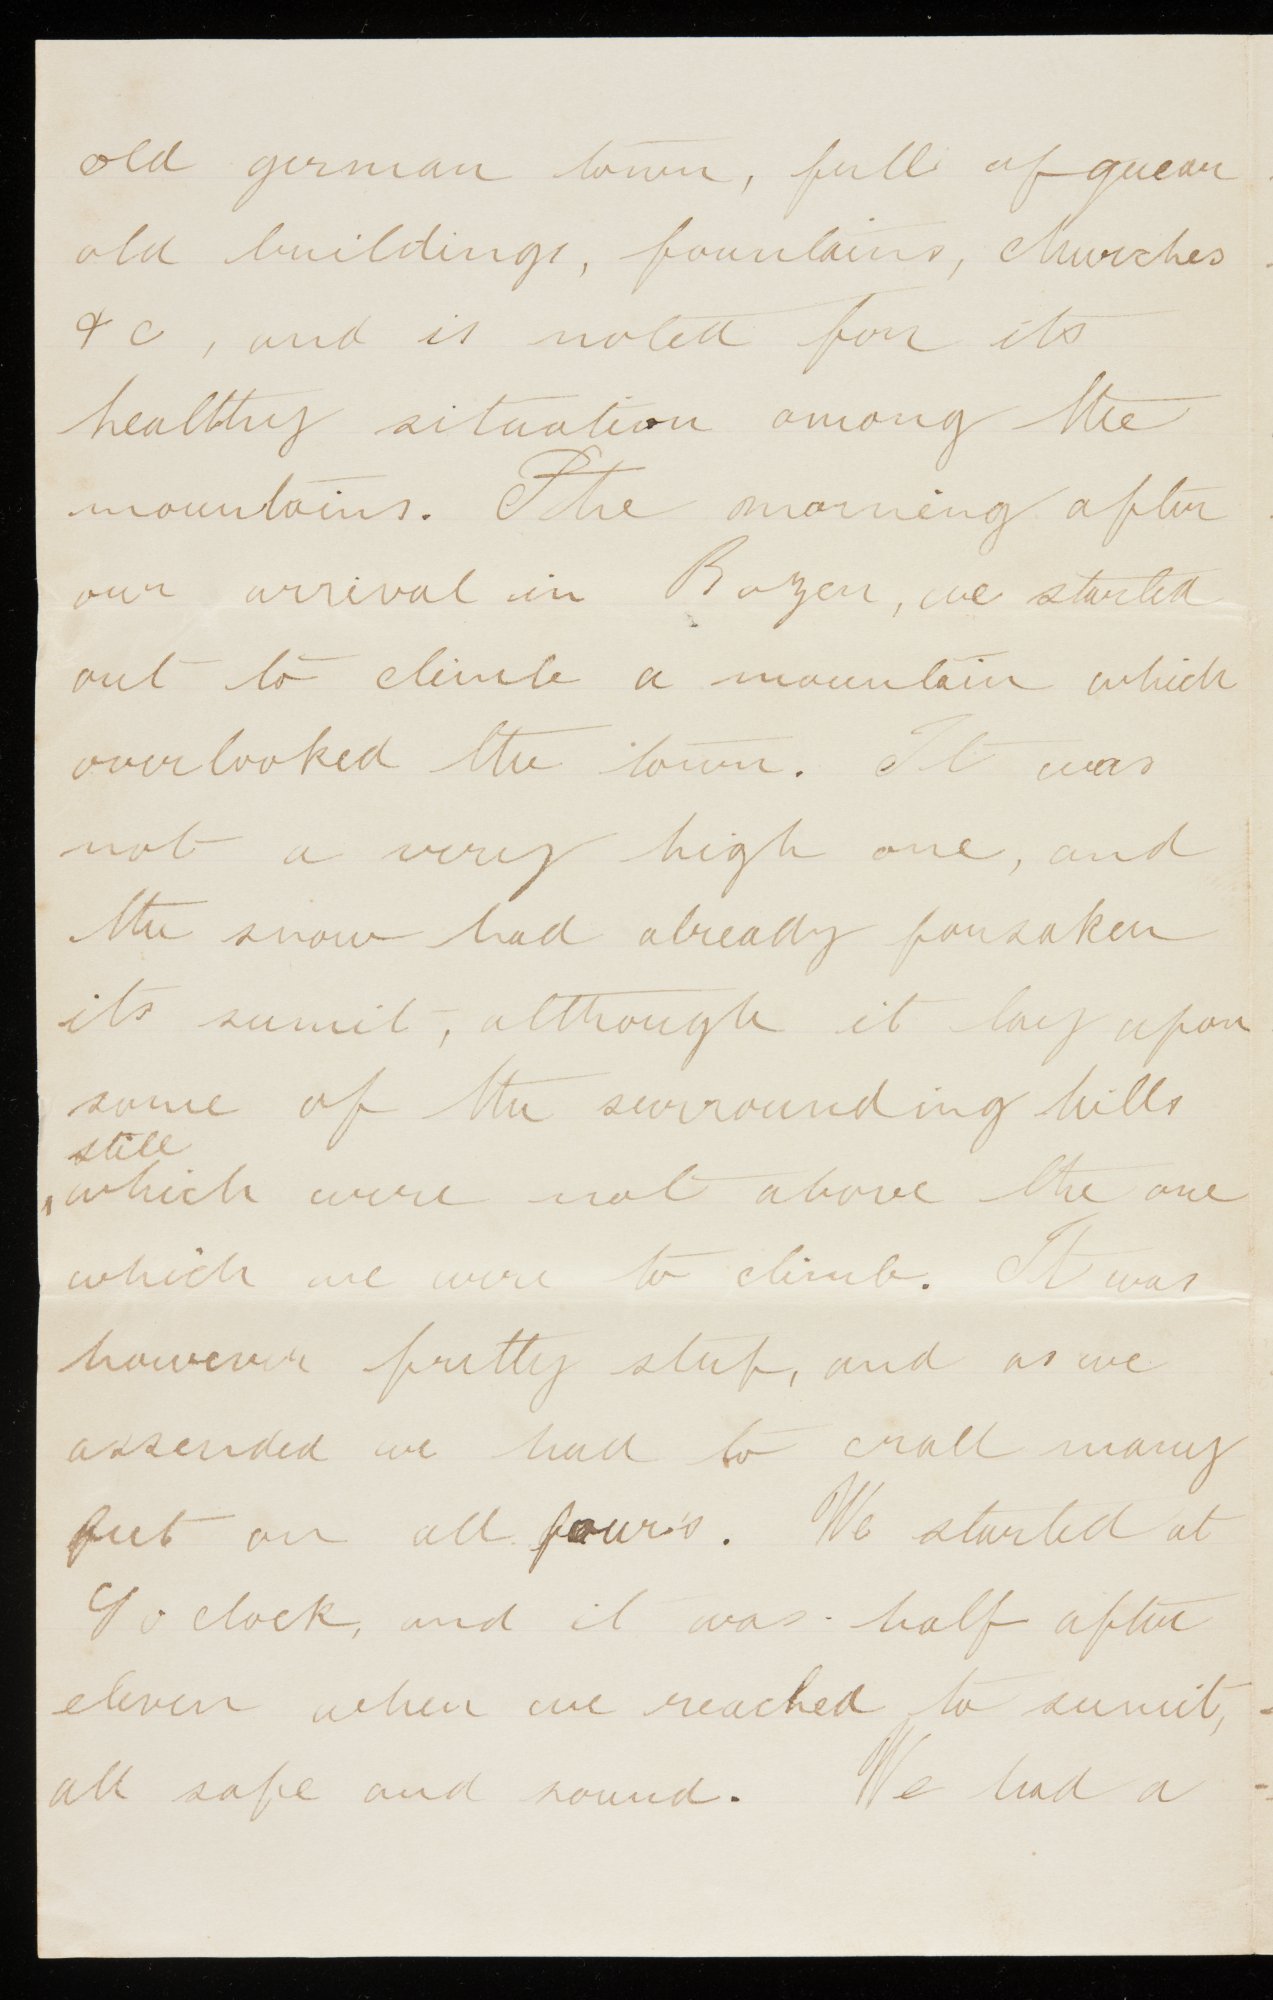 old german town, full of quear
old buildings, fountains, churches
&c, and is noted for its
healthy situation among the
mountains. The morning after
our arrival in Bozen, we started
out to climb a mountain which
overlooked the town. It was
not a very high one, and
the snow had already forsaken
its sumit, although it lay upon
some of the surrounding hills
still
which were not above the one
which we were to climb. It was
however pretty steep, and as we
assended we had to crall many
feet on all four's. We started at
9 o clock, and it was half after
eleven when we reached to sumit,
all safe and sound. We had a